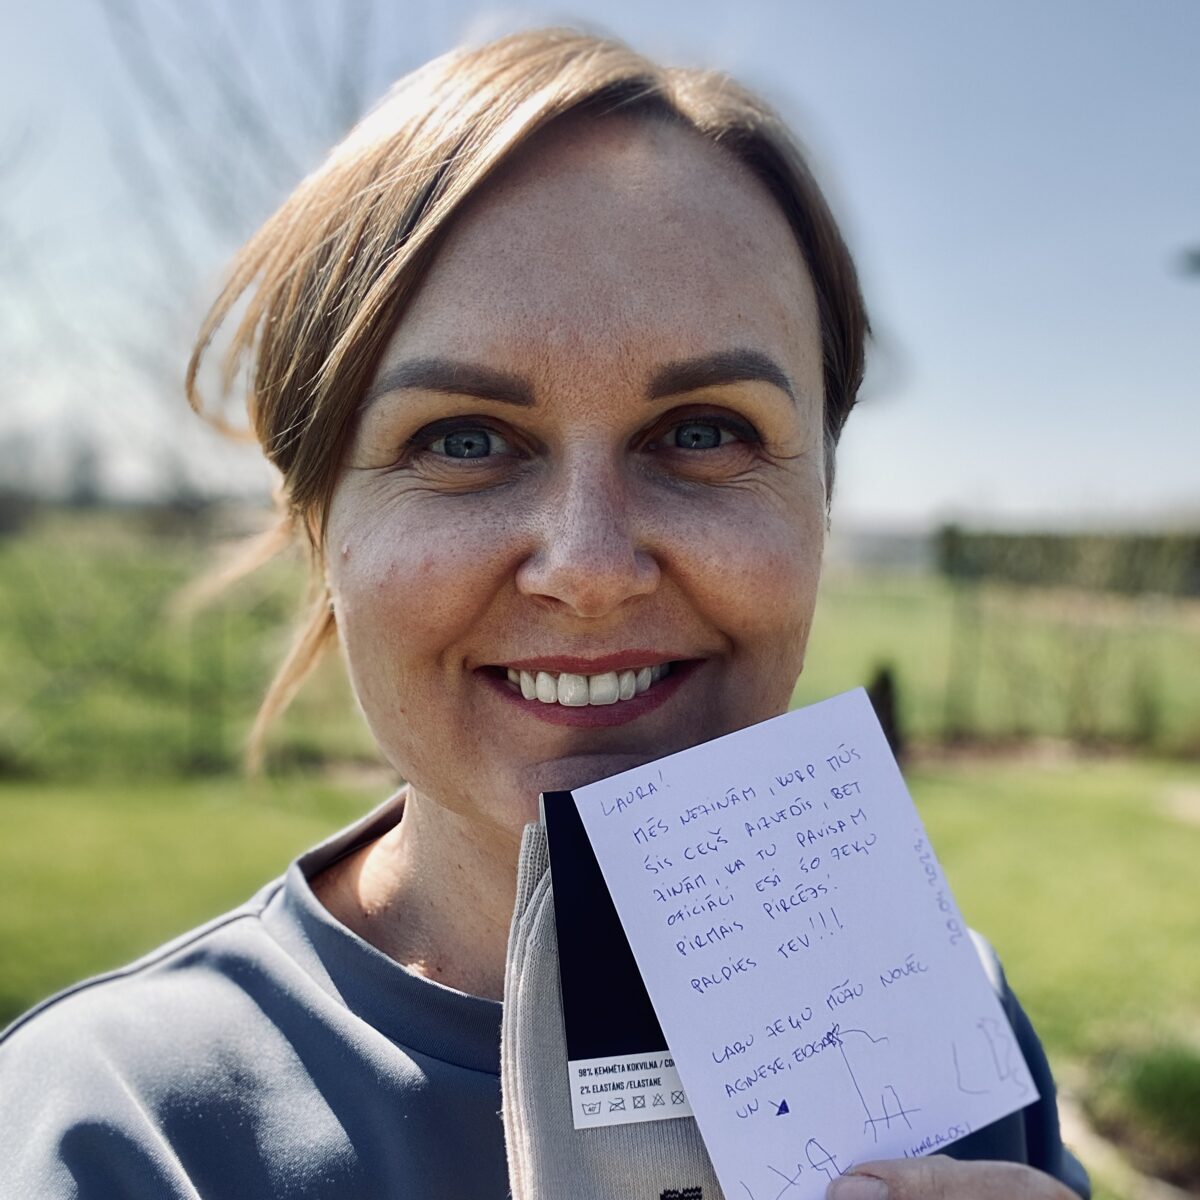 LAURA!
MĒS NEZINĀM, KURP MŪS
ŠIS CEĻŠ AIZVEDĪS, BET
ZINĀM, KA TU PAVISAM
OFICIĀLI ESI ŠO ZEĶU
PIRMAIS PIRCĒJS!
PALDIES TEV!!!
LABU ZEĶU MŪŽU NOVĒL
AGNESE, EDGARS
UN
(HARALDS)
20.04.2023.
98% ĶEMMĒTA KOKVILNA /
2% ELASTĀNS /ELASTANE